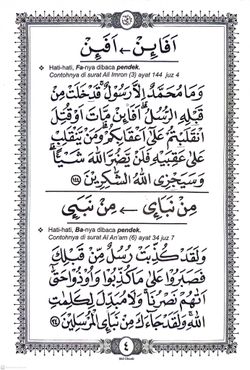 اَفَا۟ئِنْ ← اَفَئِنْ
❖ Hati-hati, Fa-nya dibaca pendek.
Contohnya di surat Ali Imron (3) ayat 144 juz 4
وَمَا مُحَمَّدٌ اِلَّا رَسُوْلٌ قَدْ خَلَتْ مِنْ
قَبْلِهِ الرُّسُلُ اَفَا۟ئِنْ مَّاتَ اَوْ قُتِلَ
انْقَلَبْتُمْ عَلٰٓى اَعْقَابِكُمْ وَمَنْ يَّنْقَلِبْ
عَلٰى عَقِبَيْهِ فَلَنْ يَّضُرَّ اللّٰهَ شَيْـًٔا
وَسَيَجْزِى اللّٰهُ الشّٰكِرِيْنَ ١٤٤
مِنْ نَبَإِى ← مِنْ نَبَىِٕ
❖ Hati-hati, Ba-nya dibaca pendek.
Contohnya di surat Al An'am (6) ayat 34 juz 7
وَلَقَدْ كُذِّبَتْ رُسُلٌ مِّنْ قَبْلِكَ
فَصَبَرُوْا عَلٰى مَا كُذِّبُوْا وَاُوْذُوْا حَتّٰٓى
اَتٰىهُمْ نَصْرُنَا وَلَا مُبَدِّلَ لِكَلِمٰتِ
اللّٰهِ وَلَقَدْ جَاۤءَكَ مِنْ نَّبَإِى الْمُرْسَلِيْنَ ٣٤
٤